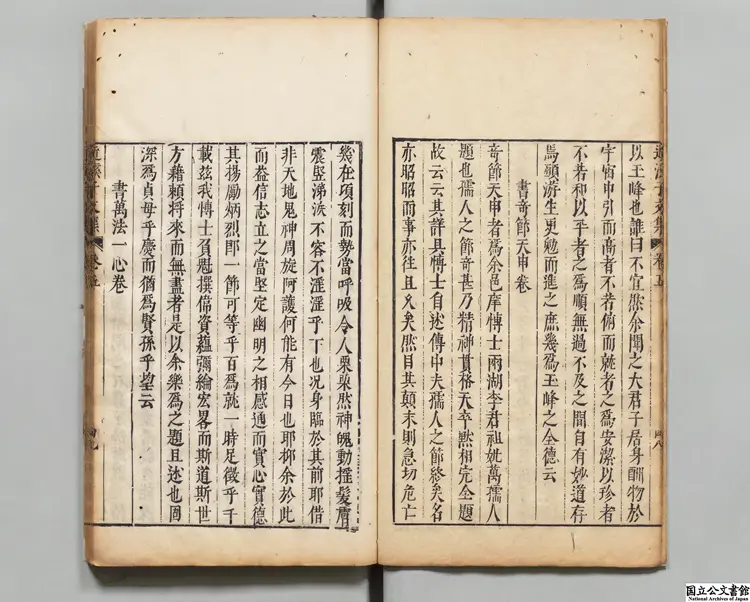 以玉峰也誰曰不宜然余聞之大君子居身酬物於
宇宙中引而高者不若俯而就者之為安潔以珍者
不若和以平者之為順無過不及之間自有妙道存
焉願游生更勉而進之庶幾為玉峰之全德云
書奇節天申卷
奇節天申者為余邑庠博士兩湖李君祖妣萬孺人
題也孺人之節奇甚乃精神貫格天卒默相完全題
故云云其詳具博士自述傳中夫孺人之節終矣名
亦昭昭而事亦往且久矣然目其顛末則急切危亡
幾在項刻而勢當呼吸令人栗栗然神魄動搖髮膚
震竪涕淚不容不漼漼乎下也况身臨於其前耶借
非天地鬼神周旋阿護何能有今日也耶抑余於此
而益信志立之當堅定幽明之相感通而實心實德
其揚勵炳烈即一節可等乎百為就一時足徵乎千
載茲我博士負魁撰偉資蘊彌綸宏畧而斯道斯世
方藉賴將來而無盡者是以余樂為之題且述也固
深為貞母乎慶而猶為賢孫乎望云
書萬法一心卷
卷五
四八
卷五
四九
国立公文書館
National Archives of Japan